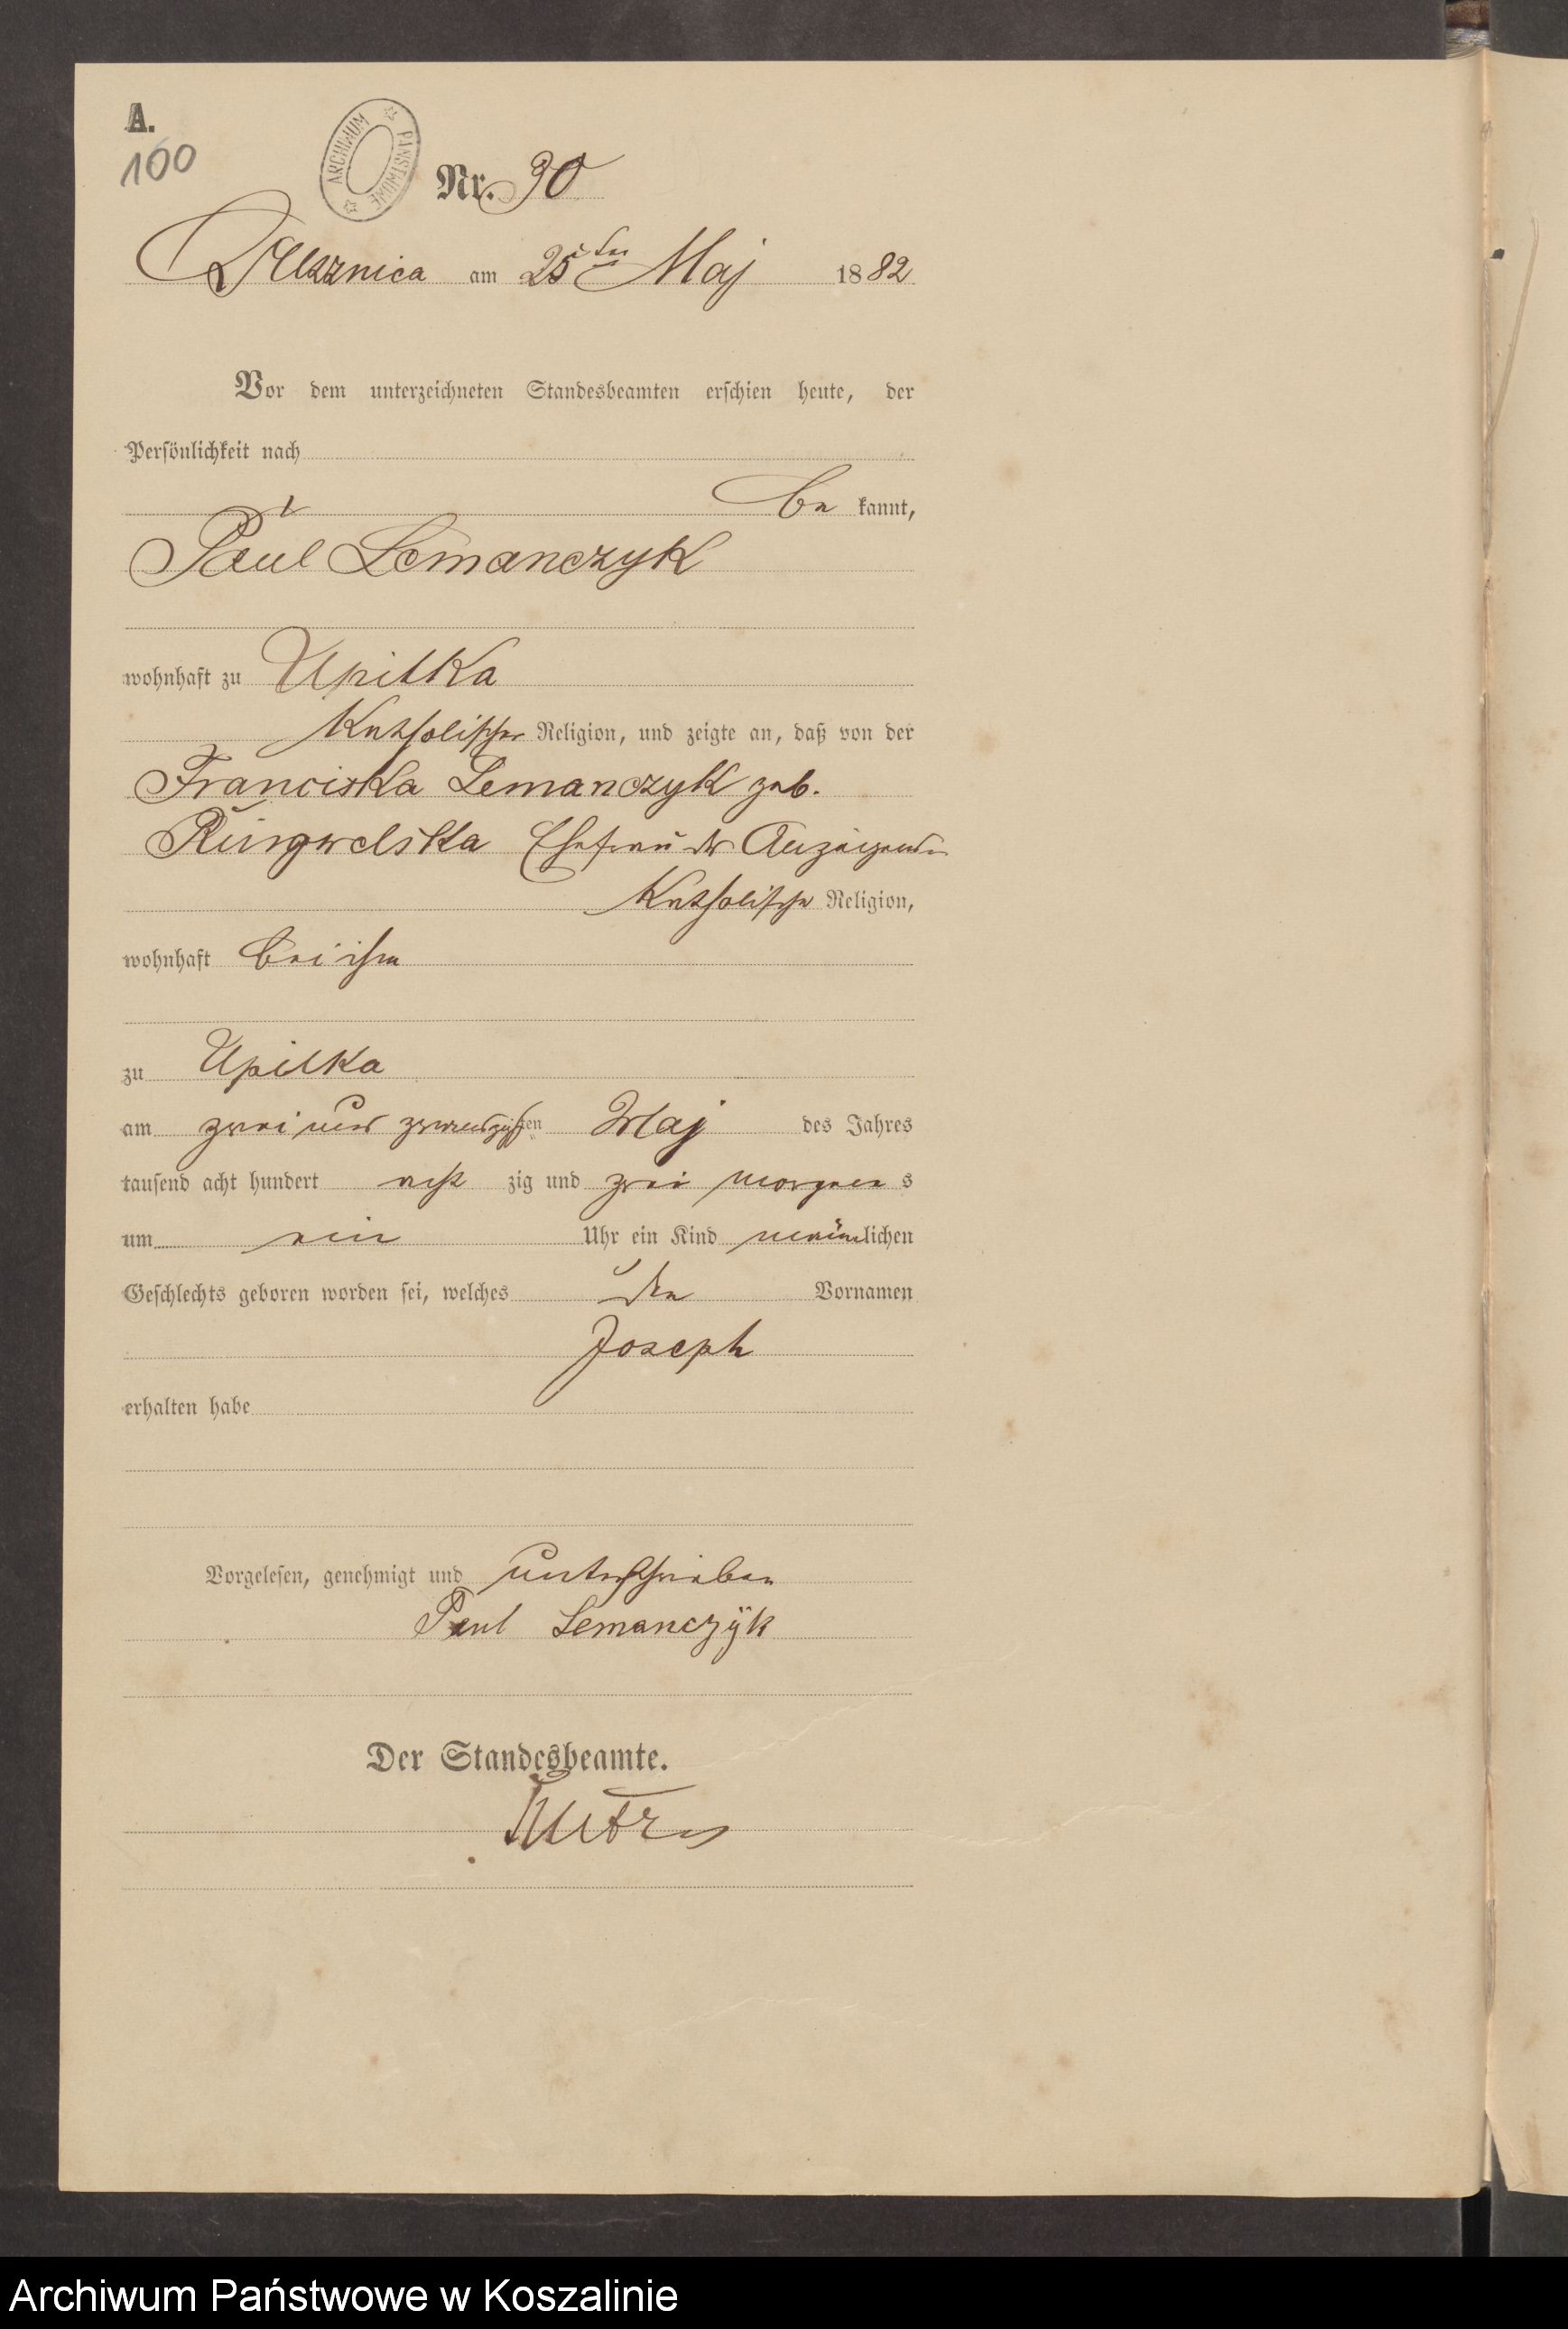 A.
100
ARCHIWUM PAŃSTWOWE
Nr. 90
am 25ten Maj 1882
Vor dem unterzeichneten Standesbeamten erschien heute, der
Persönlichkeit nach
be kannt,
Paul Lemanczyk
wohnhaft zu Upilka
Katholischer Religion, und zeigte an, daß von der
Franciska Lemanczyk geb.
Ehefrau des Anzeigenden
Katholischer Religion,
wohnhaft bei ihm
zu Upilka
am zwei und zwanzigsten Maj des Jahres
tausend acht hundert acht zig und zwei morgens
um ein Uhr ein Kind männlichen
Geschlechts geboren worden sei, welches den Vornamen
Joseph
erhalten habe
Vorgelesen, genehmigt und unterschrieben
Paul Lemanczÿk
Der Standesbeamte.
Archiwum Państwowe w Koszalinie